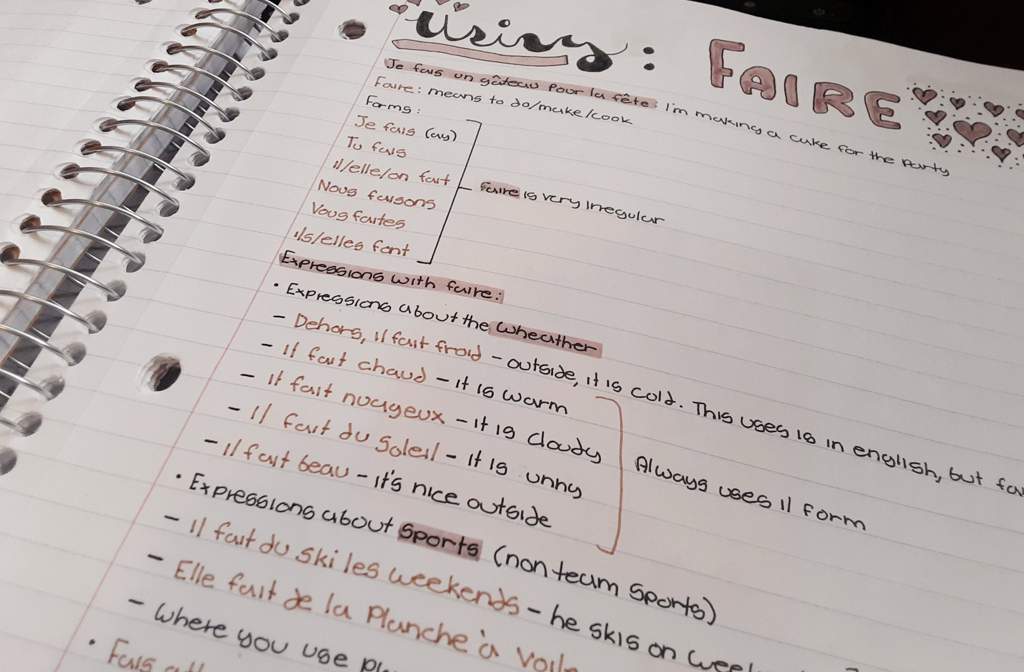 Using: FAIRE
Je fais un gâteau pour la fête: I'm making a cake for the party
Faire: means to do/make/cook
Forms:
Je fais (ay)
Tu fais
il/elle/on fait
Nous faisons
Vous faites
ils/elles font
Faire is very irregular
Expressions with faire:
• Expressions about the wheather
- Dehors, il fait froid - outside, it is cold. This uses is in english, but
- il fait chaud - it is warm
- it fait nuageux - it is cloudy
- il fait du Soleil - it is unny
- il fait beau - it's nice outside
Always uses il form
• Expressions about sports (non team sports)
- il fait du ski les weekends - he skis on
- Elle fait de la planche à
- where you use
• Fais